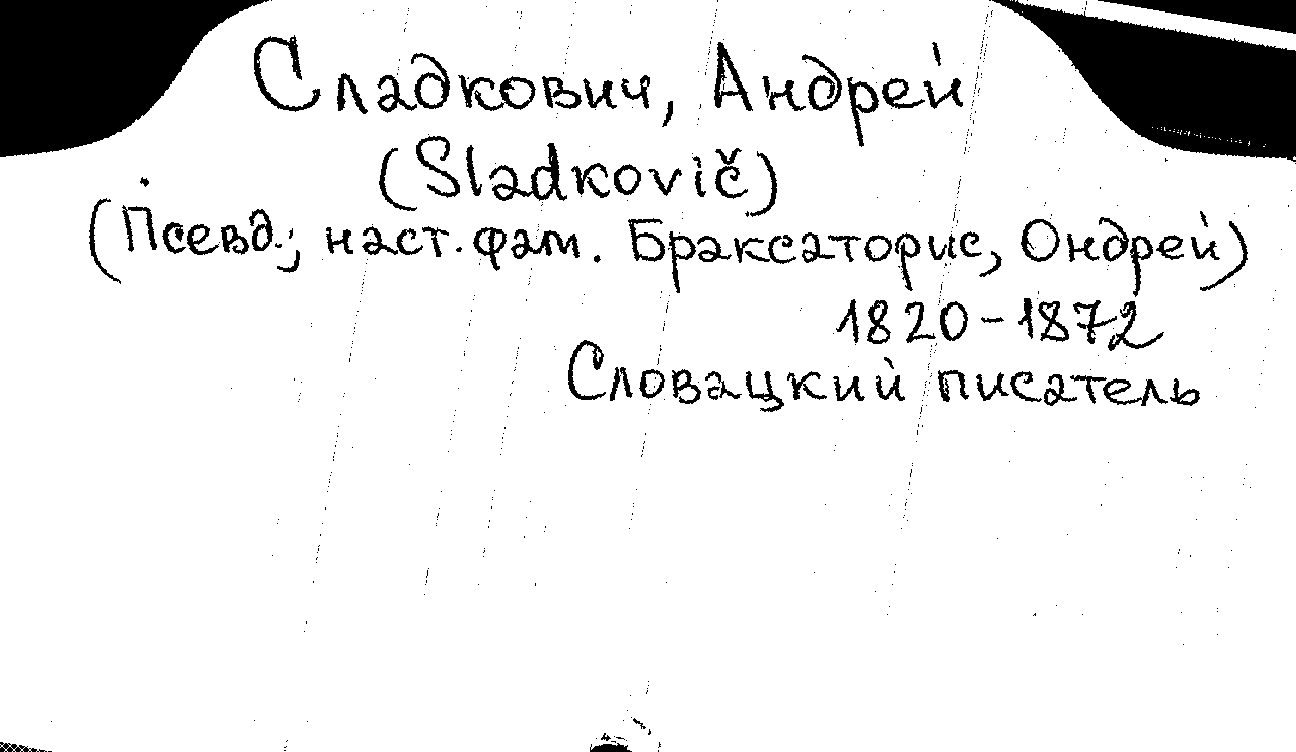 Сладкович, Андрей
(Sladkovič)
(Псевд.; наст. фам. Браксаторис, Ондрей)
1820-1872
Словацкий писатель